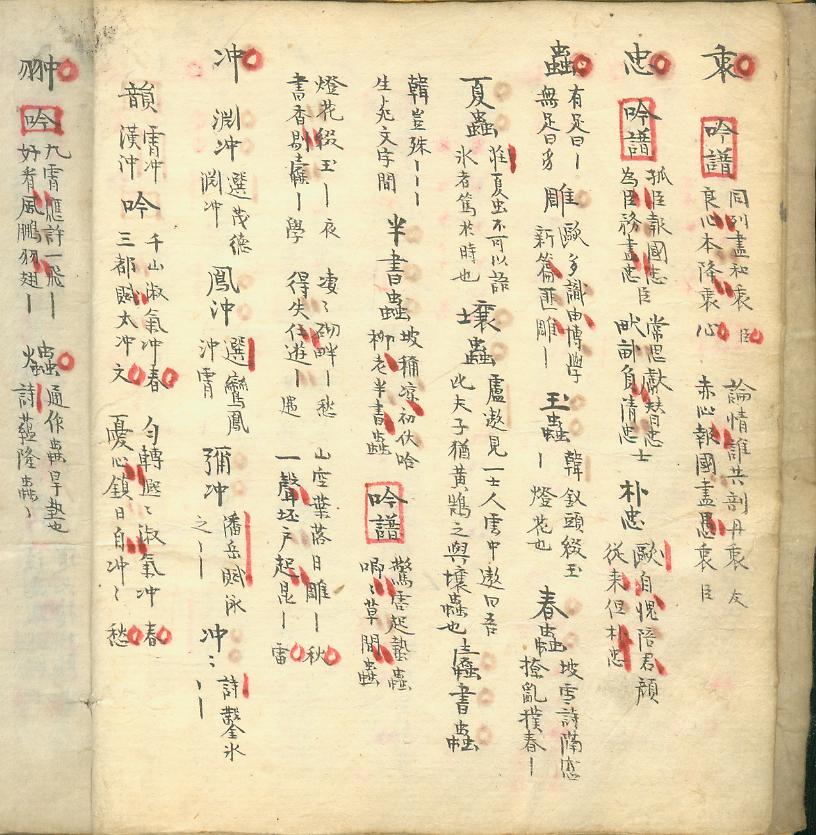 衷 吟譜 同列盡和衷 臣 良心本降衷 心 論情誰共剖丹衷 友 赤心報國盡愚衷 臣
忠 吟譜 孤臣報國忠 臣 為臣務盡忠 常思獻替忠 士 畎畝負清忠 朴忠 歐自愧陪君顏 從来但朴忠
蟲 有足曰丨 無足曰豸 雕 歐多識由博學 新篇匪雕丨 玉蟲 韓釵頭綴玉 丨燈花也 春蟲 坡雪詩 撩亂撲春丨
夏蟲 莊夏虫不可以語 氷者篤於時也 壤蟲 盧遨見一士人雲中遨曰吾 士比夫子猶黃鵠之與壤蟲也 蠹書蟲
韓豈殊丨丨丨 生死文字間 半書蟲 坡稱凉初伏哈 柳老半書蟲 吟譜 驚雷起蟄蟲 唧〻草間蟲
燈花綴玉丨 夜 書香剔蠹丨 學 凄〻砌畔丨 愁 得失任遊丨 遇 山空葉落日雕丨 秋 一聲坯戶起昆丨 雷
冲 淵冲 選茂德淵冲 鳳冲 選鸞鳳冲霄 彌冲 潘岳賦泳之丨丨 冲〻 詩鑿氷丨丨
韻 霄冲 漢冲 吟 千山淑氣冲 春 三都賦太冲 文 勻轉熙〻淑氣冲 春 憂心鎖日自冲〻 愁
翀 吟 九霄應許一飛丨 好看風鵬羽翅丨 爞 通作蟲旱熱也 詩蘊隆蟲〻